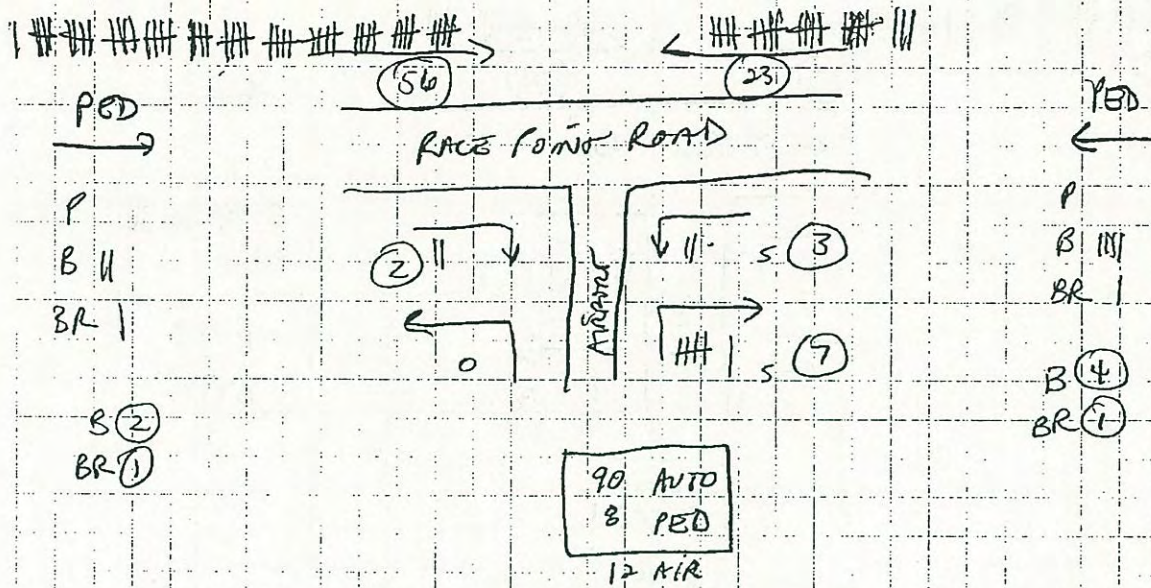 56
23
PED
PED
RACE POINT ROAD
P
B ||
BR |
2 ||
|| S 3
AIRPORT
0
𝍸 | S 7
P
B ||||
BR |
B 2
BR 1
B 4
BR 1
90 AUTO
8 PED
12 AIR